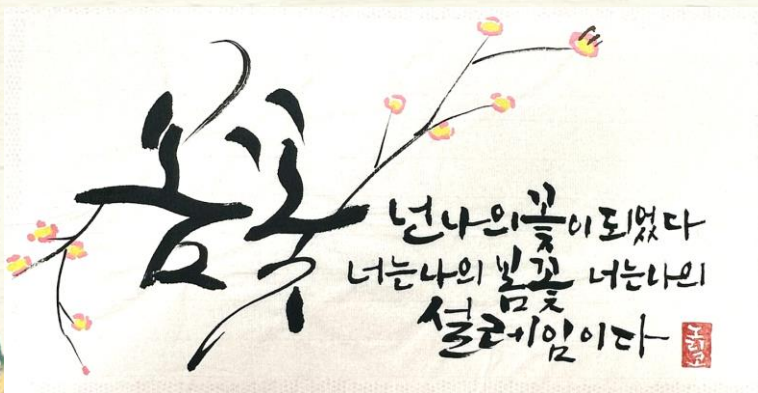 봄꽃
넌 나의 꽃이 되었다
너는 나의 봄꽃 너는 나의
설레임이다